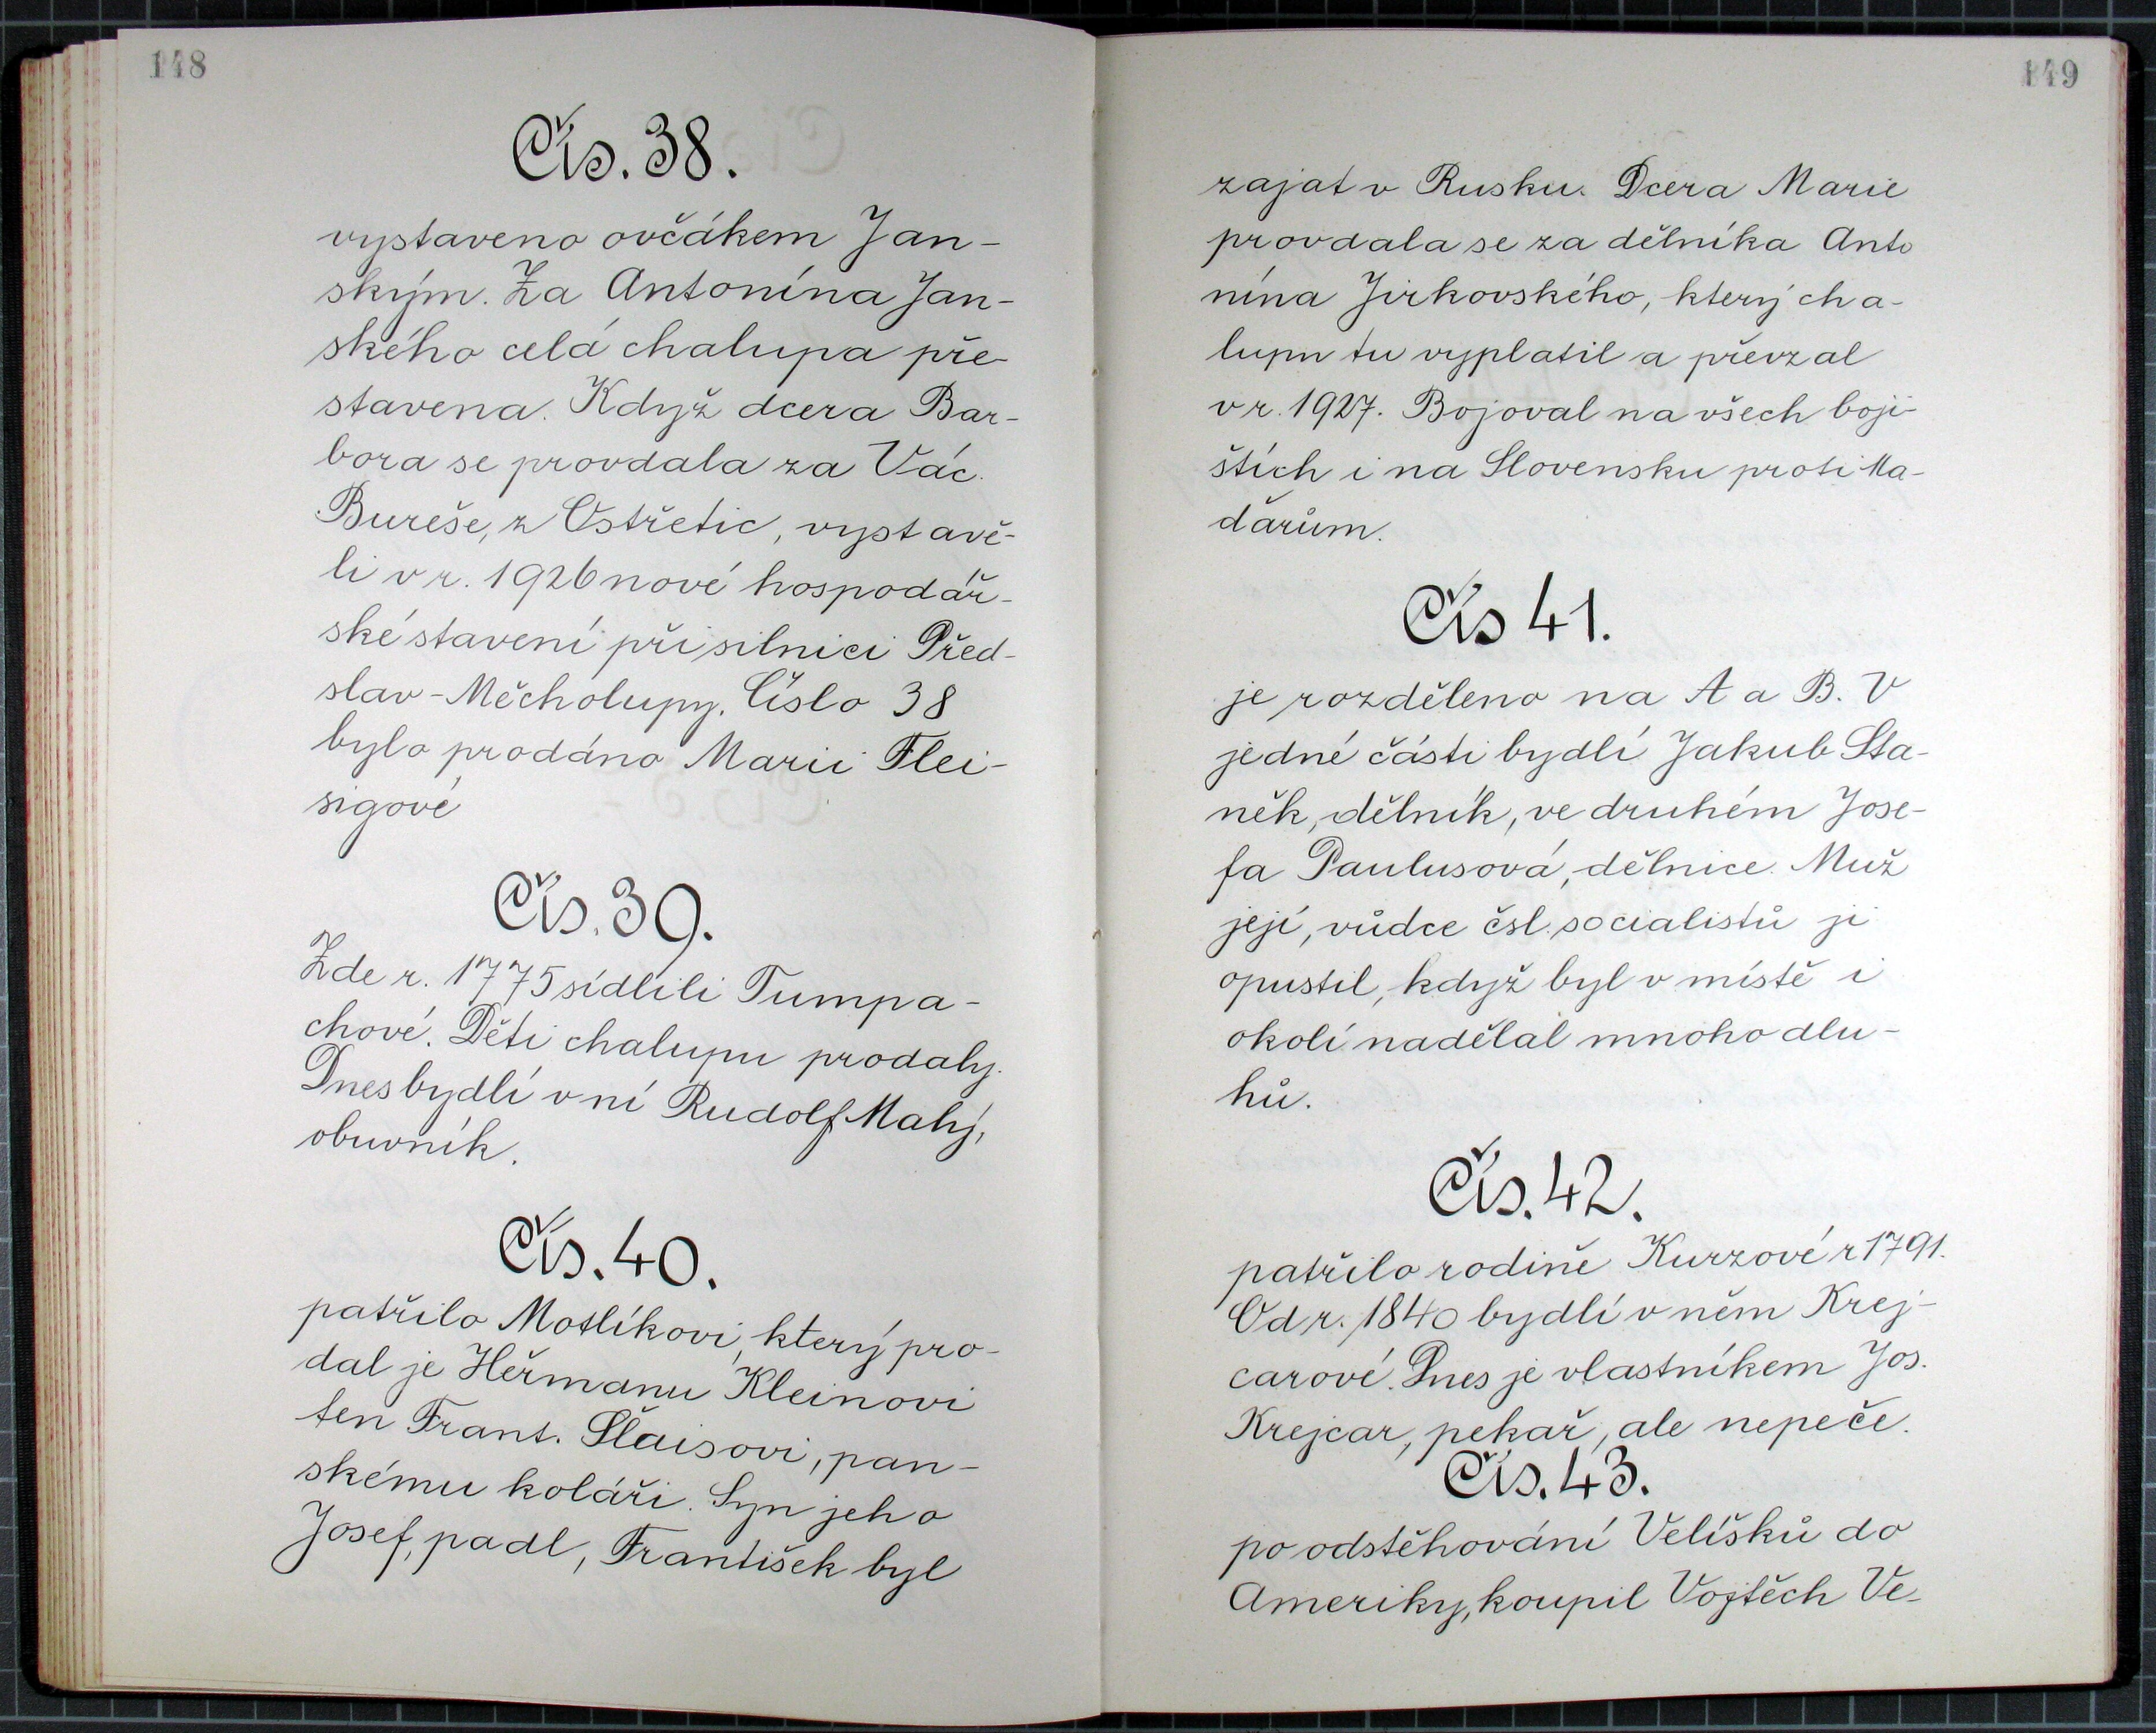 148
Čís. 38.
vystaveno ovčákem Jan-
ským. Za Antonína Jan-
ského celá chalupa pře-
stavena. Když dcera Bar-
bora se provdala za Vác.
Bureše, z Ostřetic, vystavě-
li v r. 1926 nové hospodář-
ské stavení při silnici Před-
slav-Měcholupy. Číslo 38
bylo prodáno Marii Flei-
sigové
Čís. 39.
Zde r. 1775 sídlili Tumpa-
chové. Děti chalupu prodaly.
Dnes bydlí v ní Rudolf Malý,
obuvník.
Čís. 40.
patřilo Motlíkovi, který pro-
dal je Heřmanu Kleinovi
ten Frant. Šlaisovi, pan-
skému koláři. Syn jeho
Josef, padl, František byl
149
zajat v Rusku. Dcera Marie
provdala se za dělníka Anto
nína Jirkovského, který cha-
lupu tu vyplatil a převzal
v r. 1927. Bojoval na všech boji-
štích i na Slovensku proti Ma-
ďarům.
Čís 41.
je rozděleno na A a B. V
jedné části bydlí Jakub Sta-
něk, dělník, ve druhém Jose-
fa Paulusová, dělnice. Muž
její, vůdce čsl. socialistů ji
opustil, když byl v místě i
okolí nadělal mnoho dlu-
hů.
Čís. 42.
patřilo rodině Kurzové r 1791.
Od r. 1840 bydlí v něm Krej-
carové. Dnes je vlastníkem Jos.
Krejcar, pekař, ale nepeče.
Čís. 43.
po odstěhování Velíšků do
Ameriky, koupil Vojtěch Ve-